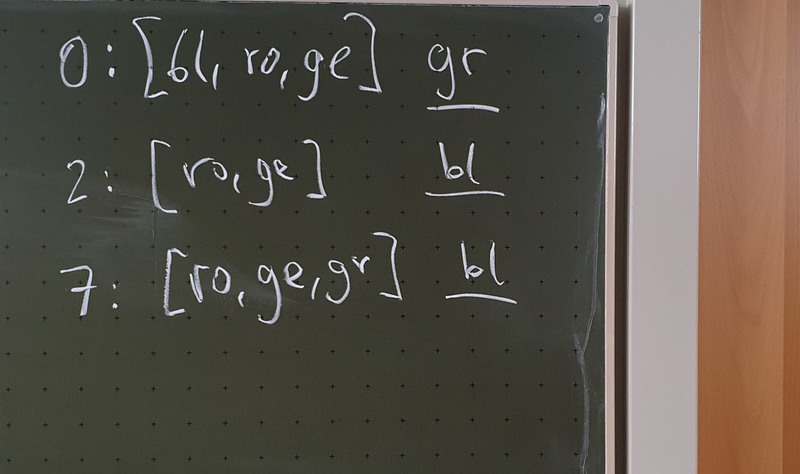 0: [bl, ro, ge] gr
2: [ro, ge] bl
7: [ro, ge, gr] bl